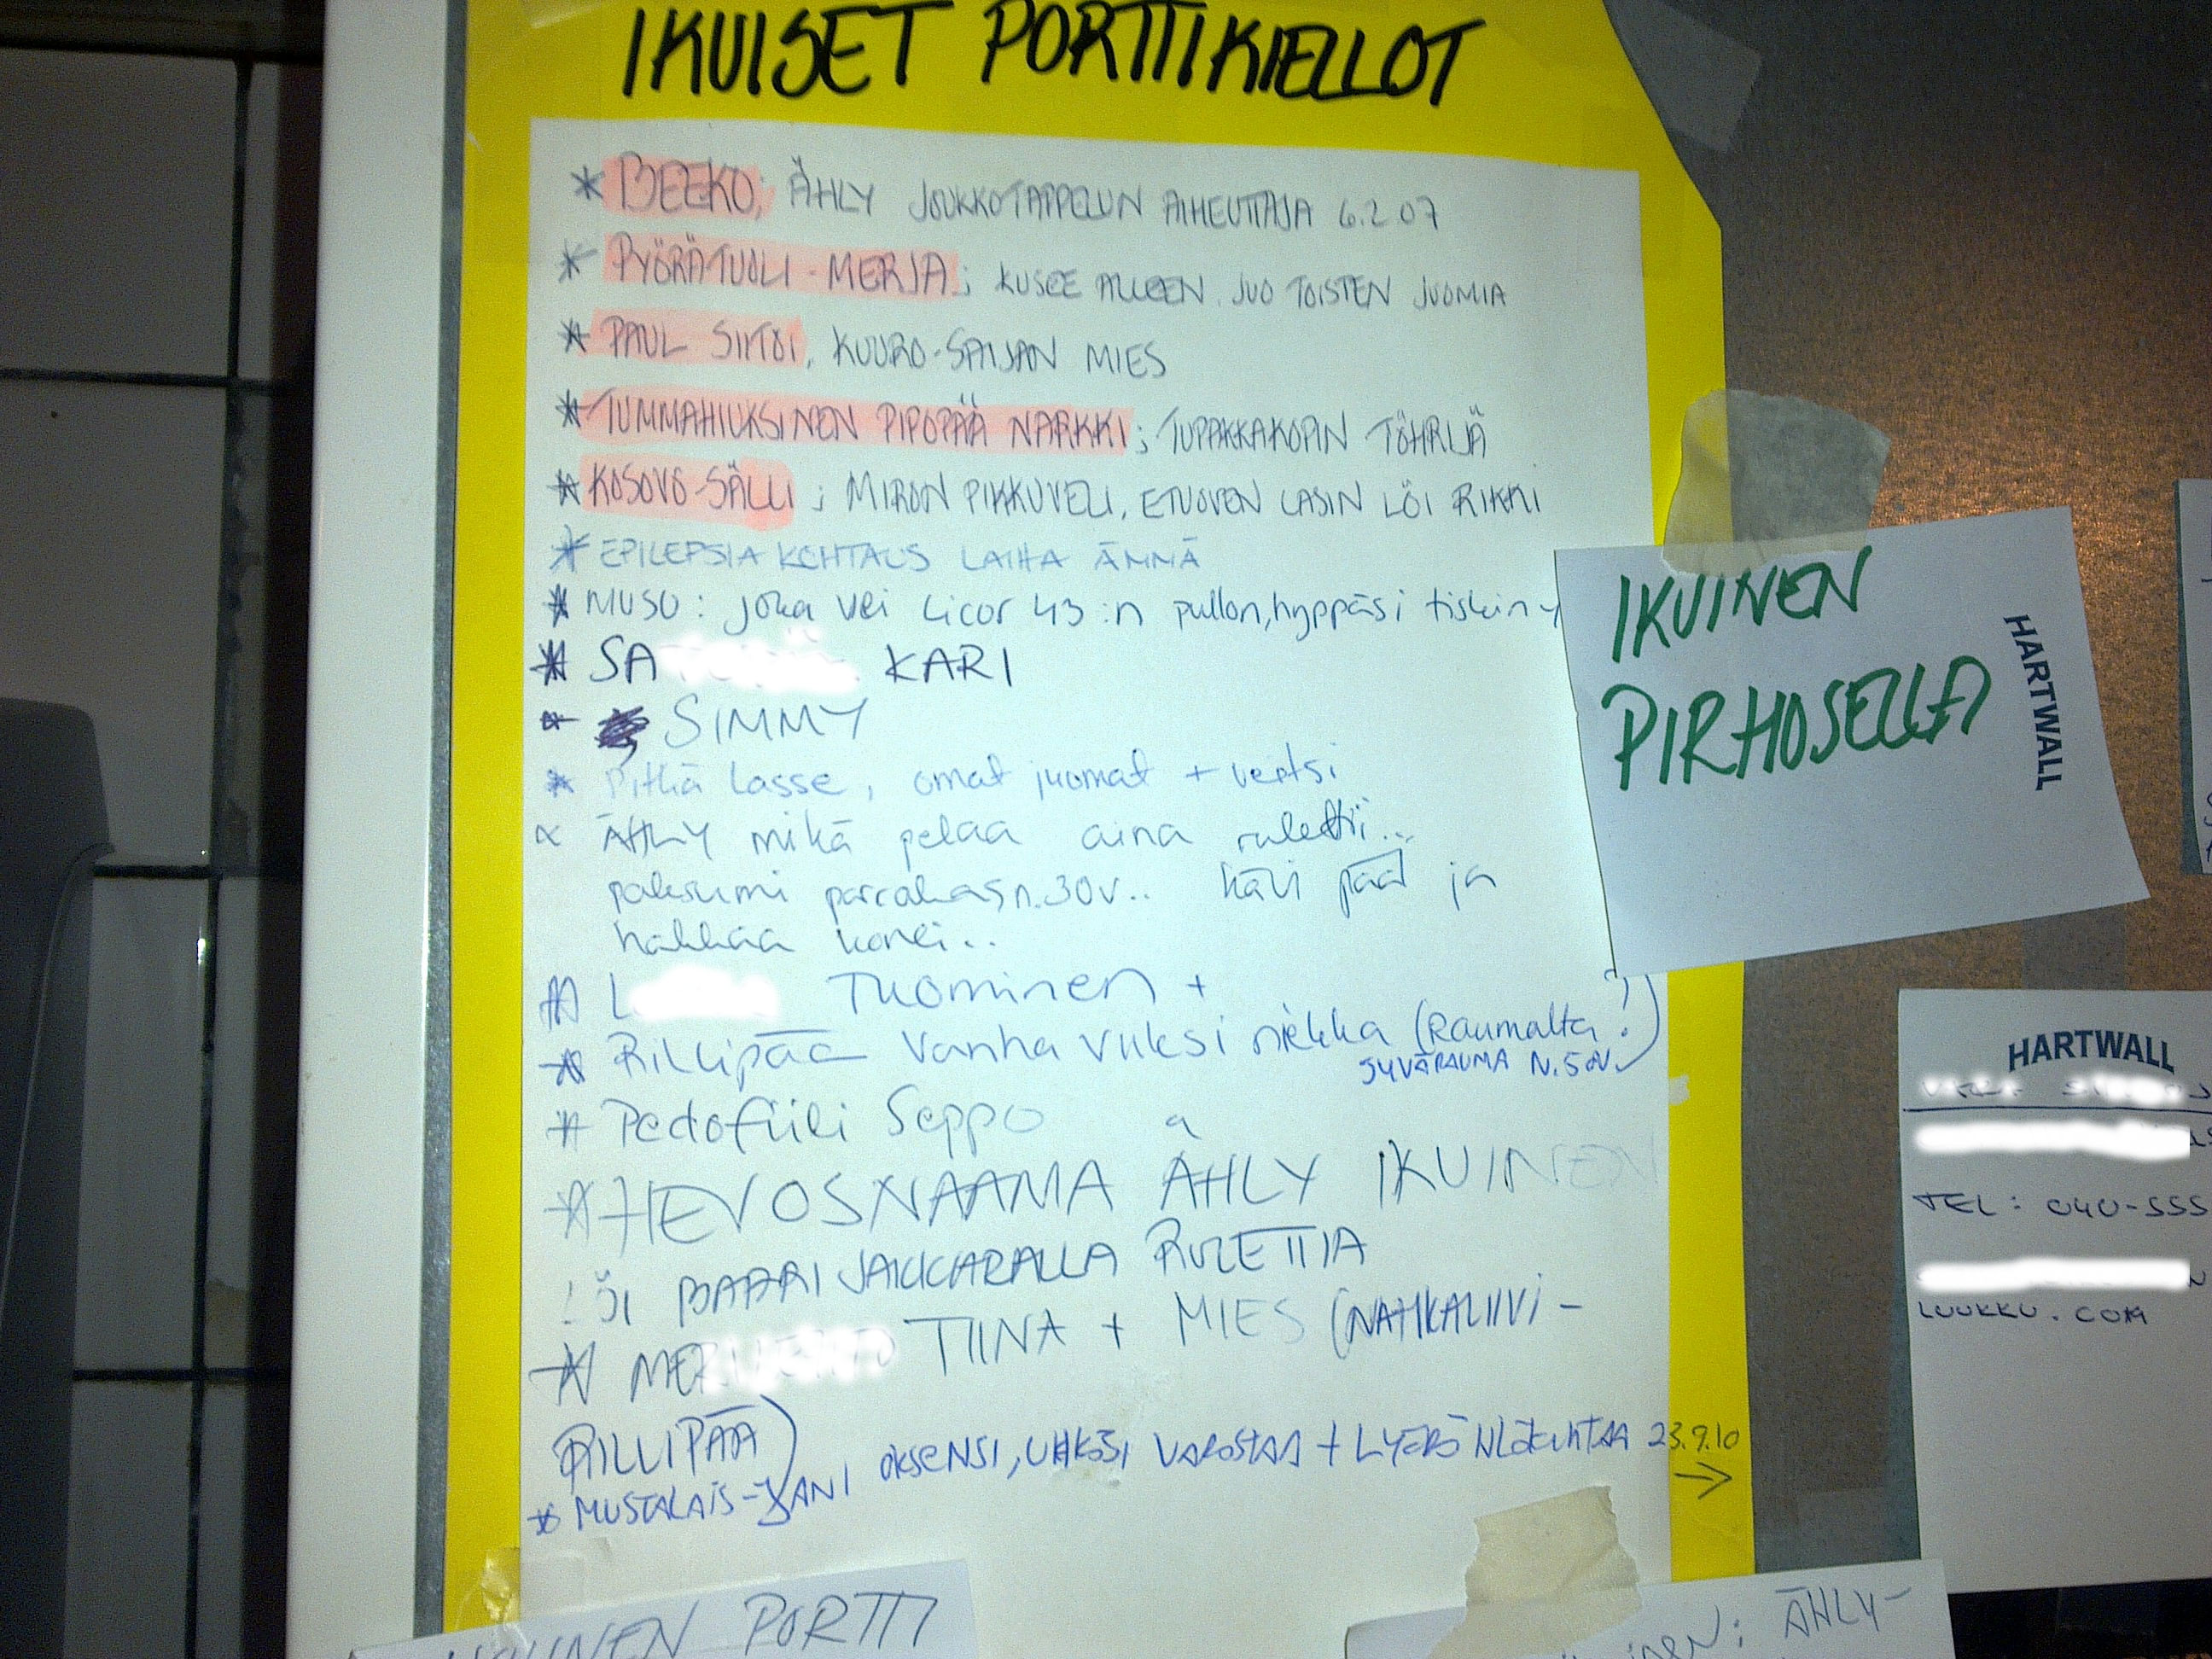 IKUISET PORTTIKIELLOT
* BEEKO; ÄHLY JOUKKOTAPPELUN AIHEUTTAJA 6.2 07
* PYÖRÄTUOLI-MERJA; KUSEE ALLEEN. JUO TOISTEN JUOMIA
* PAUL SIITOI, KUURO-SAIJAN MIES
* TUMMAHIUKSINEN PIPOPÄÄ NARKKI; TUPAKKAKOPIN TÖHRIJÄ
* KOSOVO-SÄLLI; MIRON PIKKUVELI, ETUOVEN LASIN LÖI RIKKI
* EPILEPSIA KOHTAUS LAIHA ÄMMÄ
* MUSU: joka vei Licor 43:n pullon, hyppäsi tiskin y
* SA KARI
* SIMMY
* Pitkä Lasse, omat juomat + vertsi
* ÄHLY mikä pelaa aina rulettii...
paksumi parrakas n.30v.. kävi pääl ja
hakkaa konei..
* L Tuominen +
* Rillipää vanha vuksi niekka (Raumalta?)
SYVÄRAUMA N.50V
* Pedofiili Seppo
* HEVOSNAAMA ÄHLY IKUINEN
LÖI BAARIJAKKARALLA RULETTIA
* MER TIINA + MIES (NAHKALIIVI-
RILLIPÄÄ)
* MUSTALAIS-JANI OKSENSI, UHKOSI VAROSTAA + LYÖDÄ HLÖKUNTAA 23.9.10
→
IKUINEN
PIRHOSELLA
HARTWALL
HARTWALL
TEL: 040-555
LUUKKU.COM
PORTTI
ÄHLY-